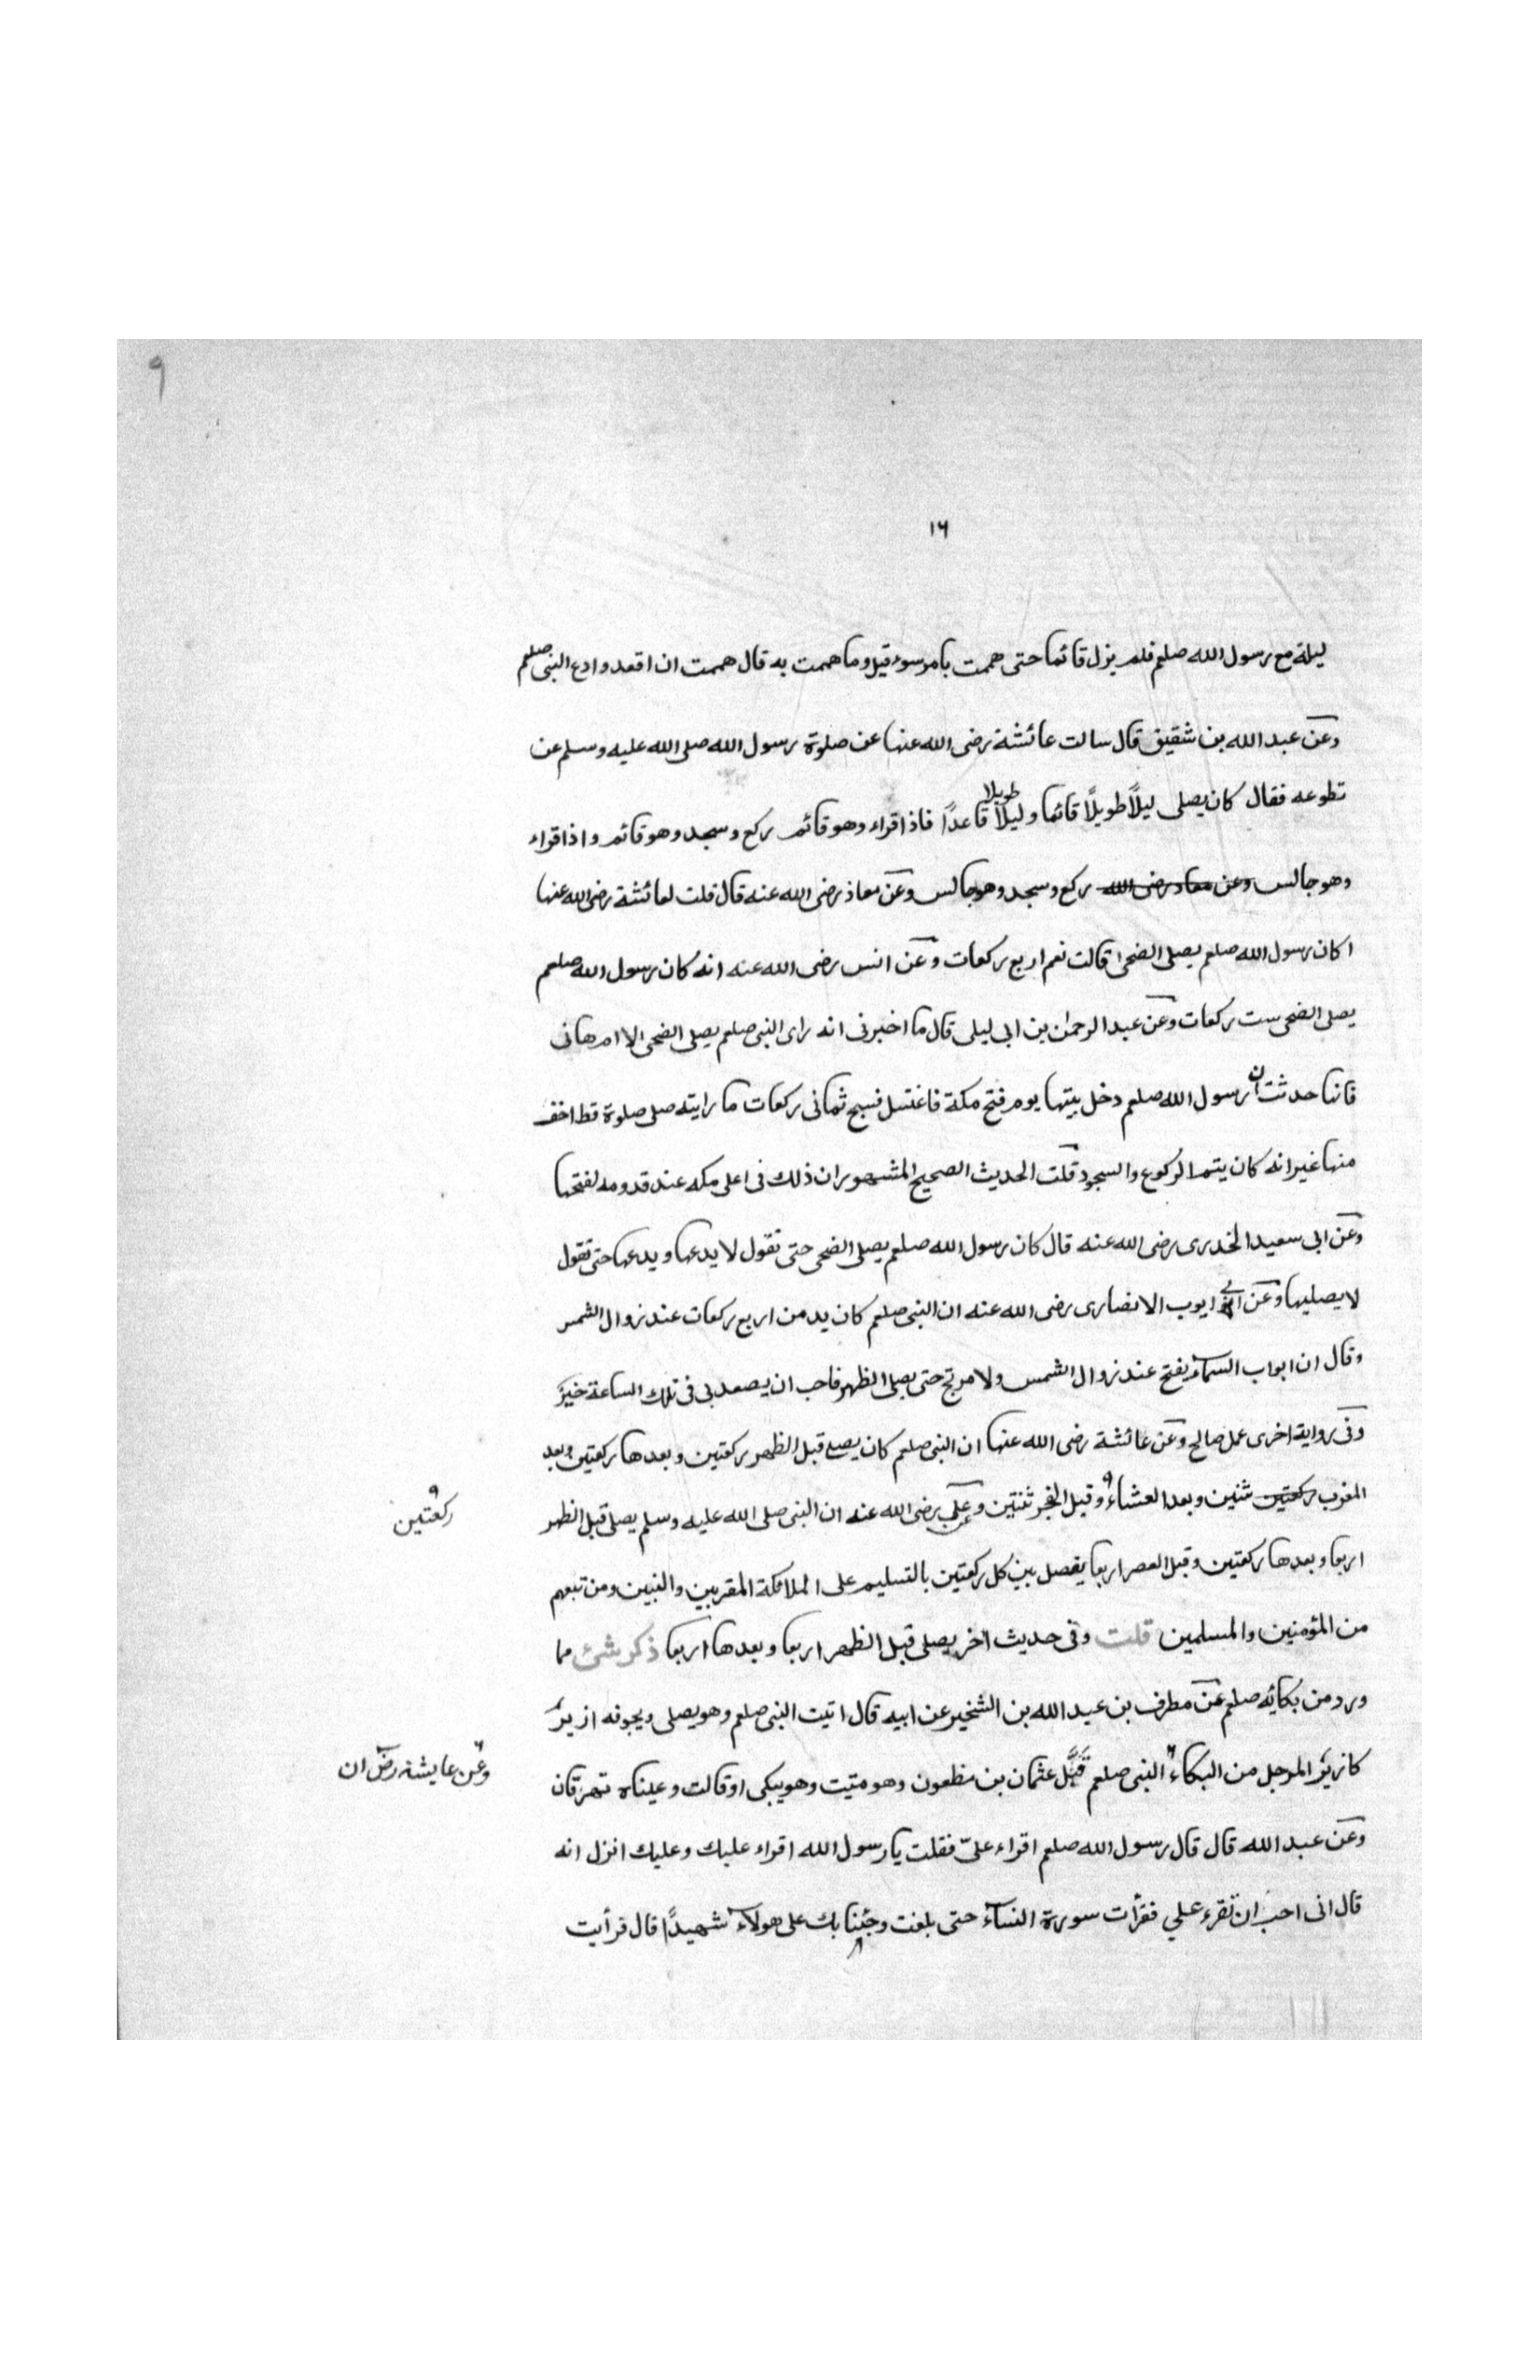 ٩
١٦
ليلة مع رسول الله صلعم فلم يزل قائما حتى هممت بامر سوء قيل وما هممت به قال هممت ان اقعد وادع النبى صلعم
وعن عبد الله بن شقيق قال سالت عائشة رضى الله عنها عن صلوة رسول الله صلى الله عليه وسلم عن
تطوعه فقال كان يصلى ليلاً طويلاً قائما وليلا طويلا قاعدًا فاذا قراء وهو قائم ركع وسجد وهو قائم واذا قراء
وهو جالس وعن معاذ رضى الله ركع وسجد وهو جالس وعن معاذ رضى الله عنه قال قلت لعائشة رضى الله عنها
اكان رسول الله صلعم يصلى الضحى قالت نعم اربع ركعات وعن انس رضى الله عنه انه كان رسول الله صلعم
يصلى الضحى ست ركعات وعن عبد الرحمن بن ابى ليلى قال ما اخبرنى انه راى النبى صلعم يصلى الضحى الا ام هانى
فانها حدثت ان رسول الله صلعم دخل بيتها يوم فتح مكة فاغتسل فسبح ثمانى ركعات ما رايته صلى صلوة قط اخف
منها غير انه كان يتم الركوع والسجود قلت الحديث الصحيح المشهور ان ذلك فى اعلى مكه عند قدومه لفتحها
وعن ابى سعيد الخدرى رضى الله عنه قال كان رسول الله صلعم يصلى الضحى حتى نقول لا يدعها ويدعها حتى نقول
لا يصليها وعن ابى ايوب الانصارى رضى الله عنه ان النبى صلعم كان يدمن اربع ركعات عند زوال الشمس
وقال ان ابواب السماء يفتح عند زوال الشمس ولا مرتج حتى يصلى الظهر فاحب ان يصعد بى فى تلك الساعة خيرٌ
وفى رواية اخرى عمل صالح وعن عائشة رضى الله عنها ان النبى صلعم كان يصلى قبل الظهر ركعتين وبعدها ركعتين وبعد
المغرب ركعتين ثنين وبعد العشاء وقبل الفجر ثنتين وعن على رضى الله عنه ان النبى صلى الله عليه وسلم يصلى قبل الظهر
ركعتين
اربعا وبعدها ركعتين وقبل العصر اربعا يفصل بين كل ركعتين بالتسليم على الملائكة المقربين والنبيين ومن تبعهم
من المؤمنين والمسلمين قلت وفى حديث آخر يصلى قبل الظهر اربعا وبعدها اربعا ذكر شئ مما
ورد من بكائه صلعم عن مطرف بن عبد الله بن الشخير عن ابيه قال اتيت النبى صلعم وهو يصلى ويجوفه ازيز
كازيز المرجل من البكاء النبى صلعم قبَّل عثمان بن مظعون وهو ميت وهو يبكى او قالت وعيناه تهرقان
وعن عايشة رض ان
وعن عبد الله قال قال رسول الله صلعم اقراء علىّ فقلت يا رسول الله اقراء عليك وعليك انزل انه
قال انى احب ان تقرء على فقرأت سورة النساء حتى بلغت وجئنا بك على هولاء شهيدًا قال فرأيت